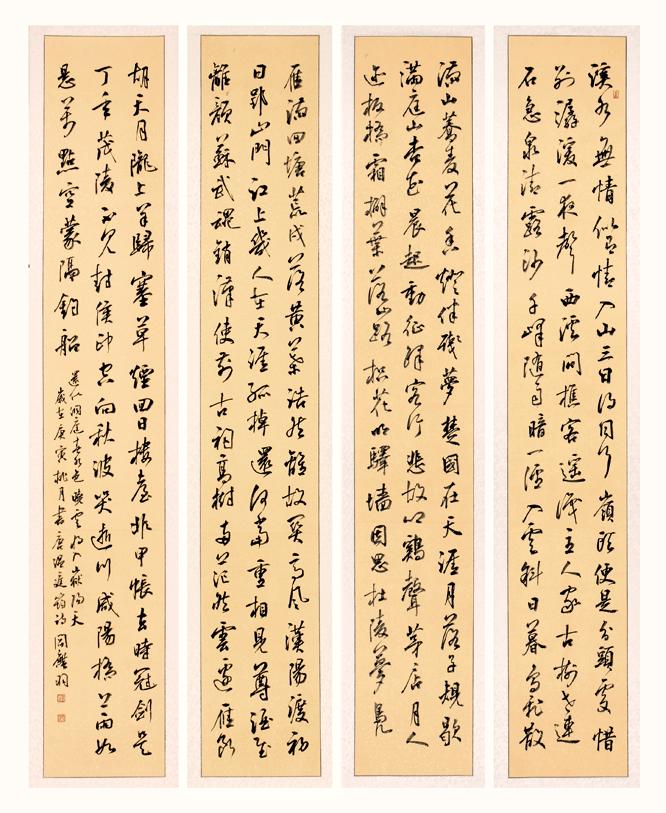 溪水無情似有情入山三日得同行嶺頭便是分頭處惜
別潺湲一夜聲西溪問樵客遙識主人家古樹老連
石急泉清露沙千峰隨雨暗一徑入雲斜日暮鳥飛散
滿山蕎麥花香燈伴殘夢楚國在天涯月落子規歇
滿庭山杏花晨起動征鐸客行悲故鄉雞聲茅店月人
迹板橋霜槲葉落山路枳花明驛墻因思杜陵夢鳧
雁滿回塘荒戍落黃葉浩然離故關高風漢陽渡初
日郢山門江上幾人在天涯孤棹還何當重相見尊酒慰
離顏蘇武魂銷漢使前古祠高樹兩茫然雲邊雁斷
胡天月隴上羊歸塞草煙回日樓臺非甲帳去時冠劍是
丁年茂陵不見封侯印空向秋波哭逝川咸陽橋上雨如
懸萬點空蒙隔釣船
還似洞庭春水色曉雲將入嶽陽天
歲在庚寅桃月書唐溫庭筠詩